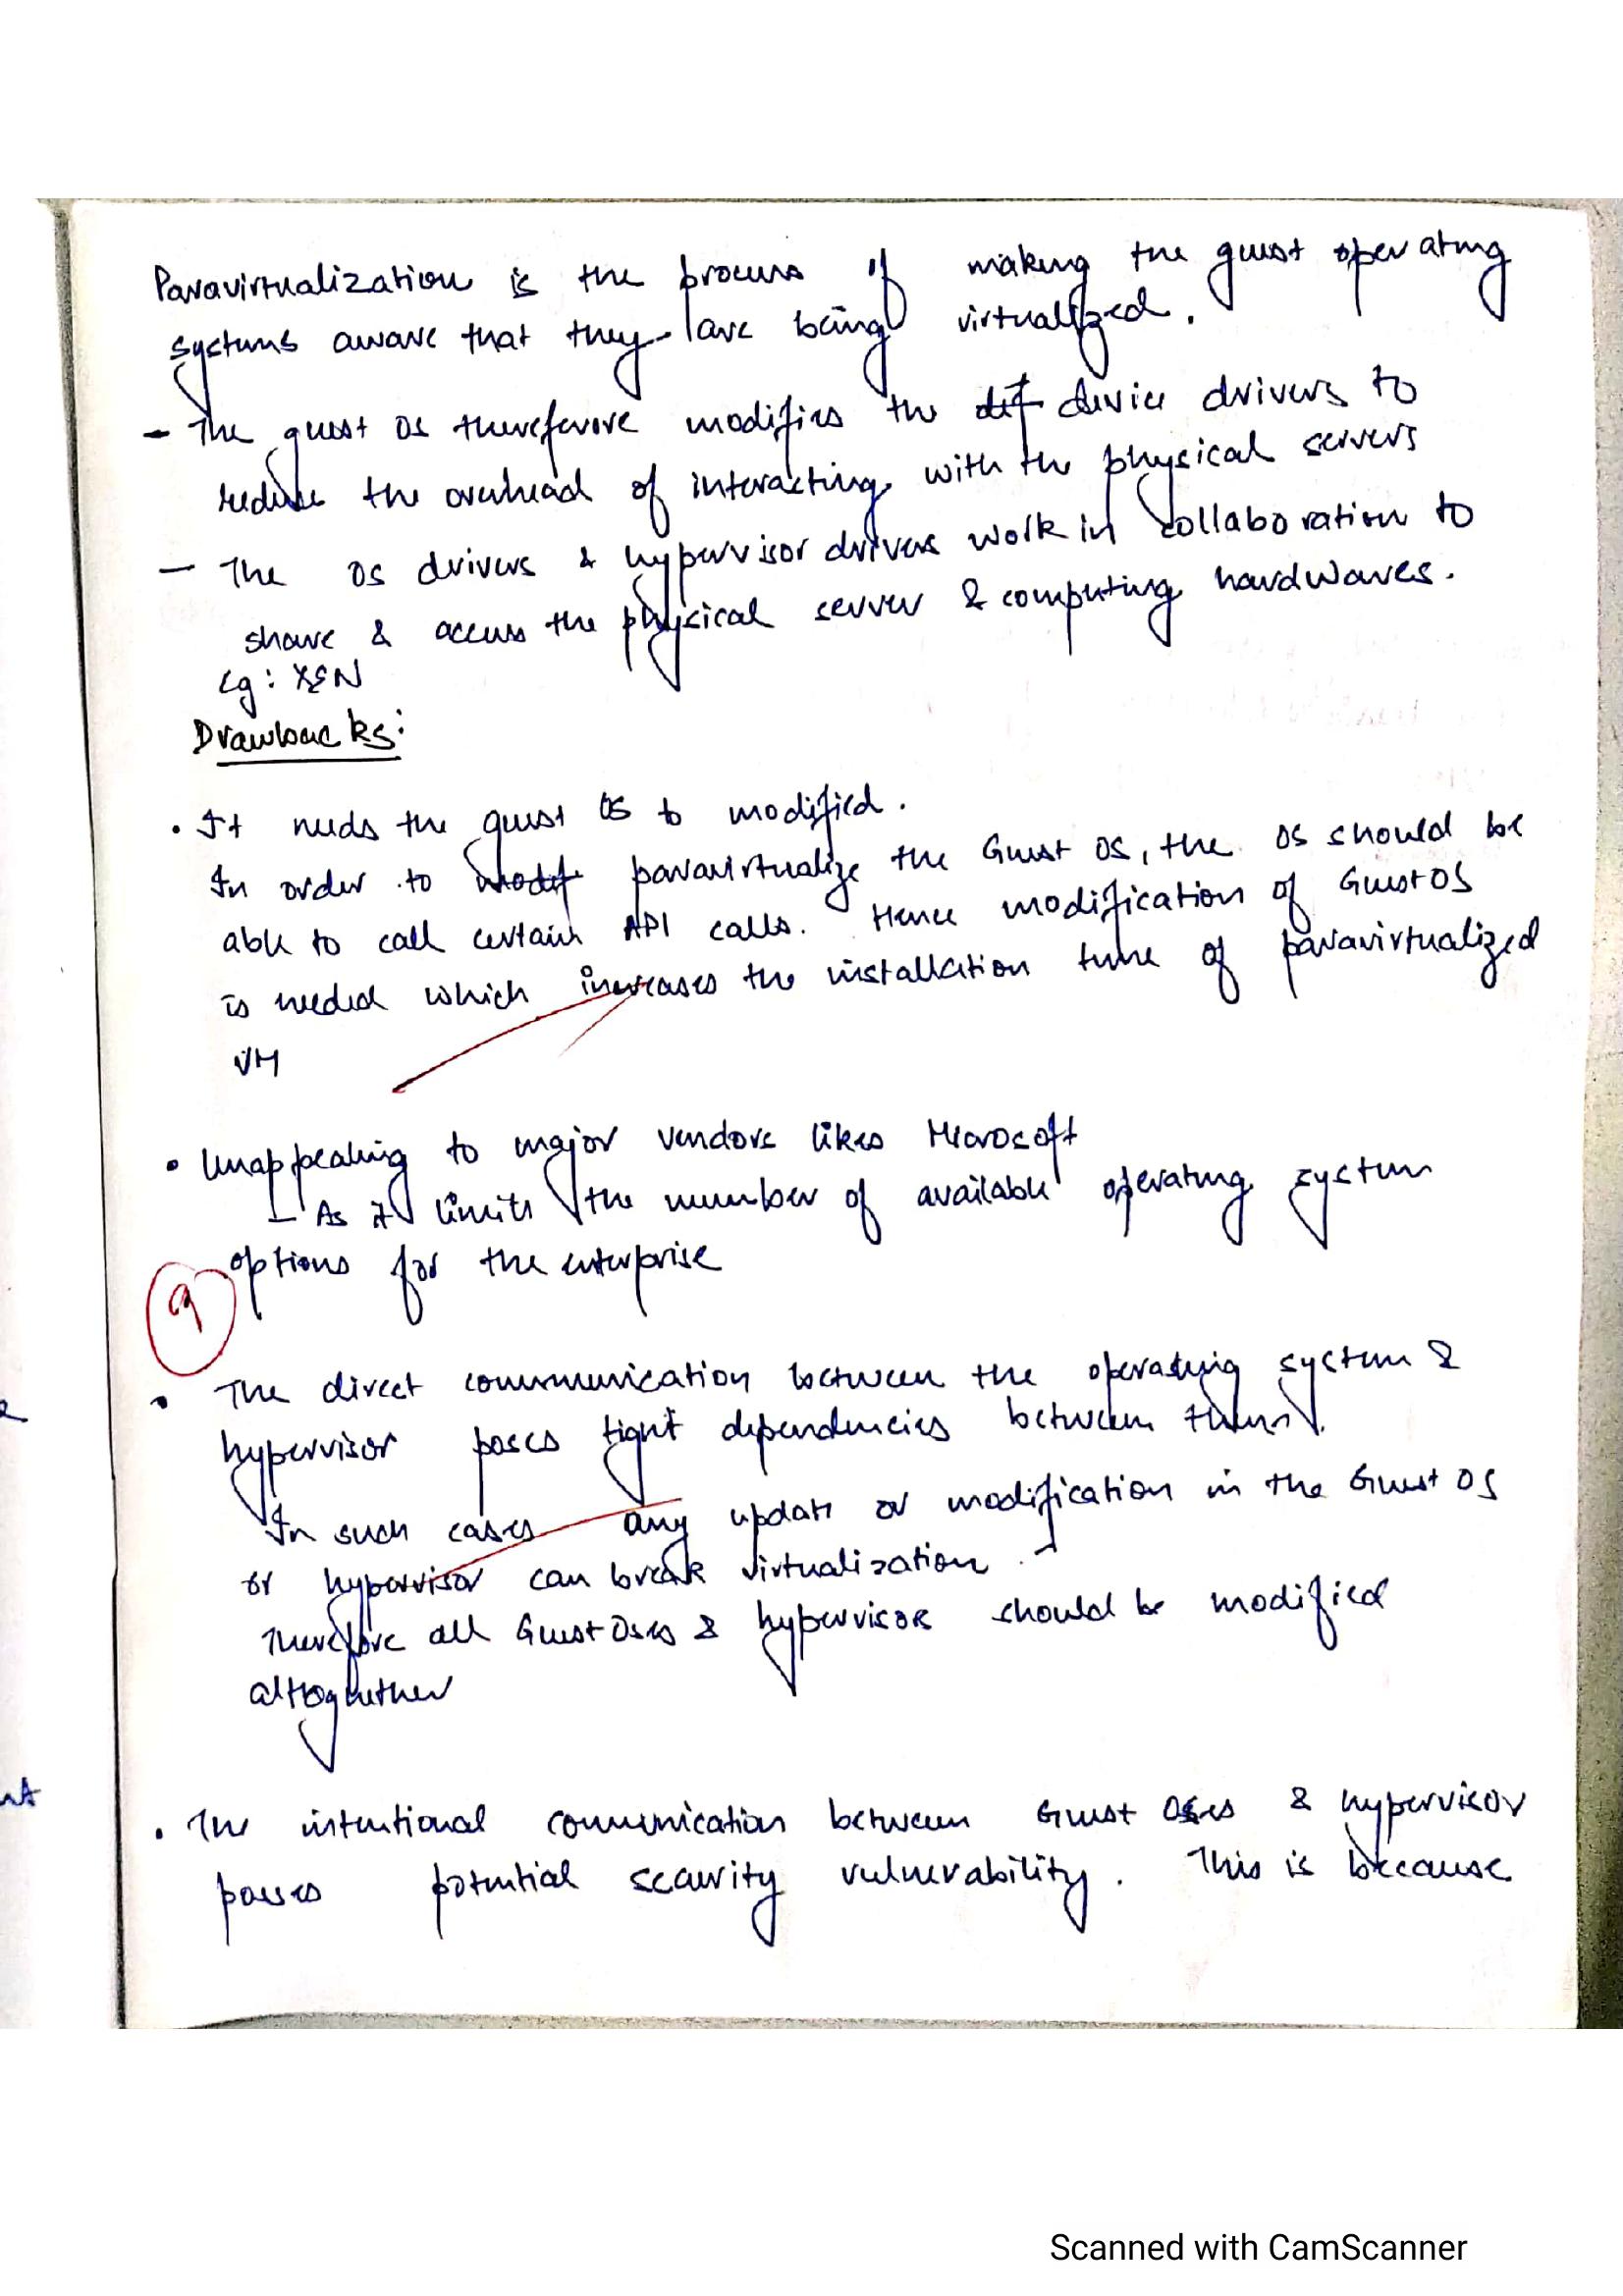 Paravirtualization is the process of making the guest operating
systems aware that they are being virtualized.
- The guest OS therefore modifies the device drivers to
reduce the overhead of interacting with the physical servers
- The OS drivers & hypervisor drivers work in collaboration to
share & access the physical server & computing hardwares.
Eg: XEN
Drawbacks:
• It needs the guest OS to modified.
In order to modify paravirtualize the Guest OS, the OS should be
able to call certain API calls. Hence modification of Guest OS
is needed which increases the installation time of paravirtualized
VM
• Unappealing to major vendors likes Microsoft
- As it limits the number of available operating system
options for the enterprise
9
• The direct communication between the operating system &
hypervisor poses tight dependencies between them.
In such cases any update or modification in the Guest OS
or hypervisor can break virtualization.
Therefore all Guest OSes & hypervisor should be modified
altogether
• The intentional communication between Guest OSes & hypervisor
poses potential security vulnerability. This is because
Scanned with CamScanner